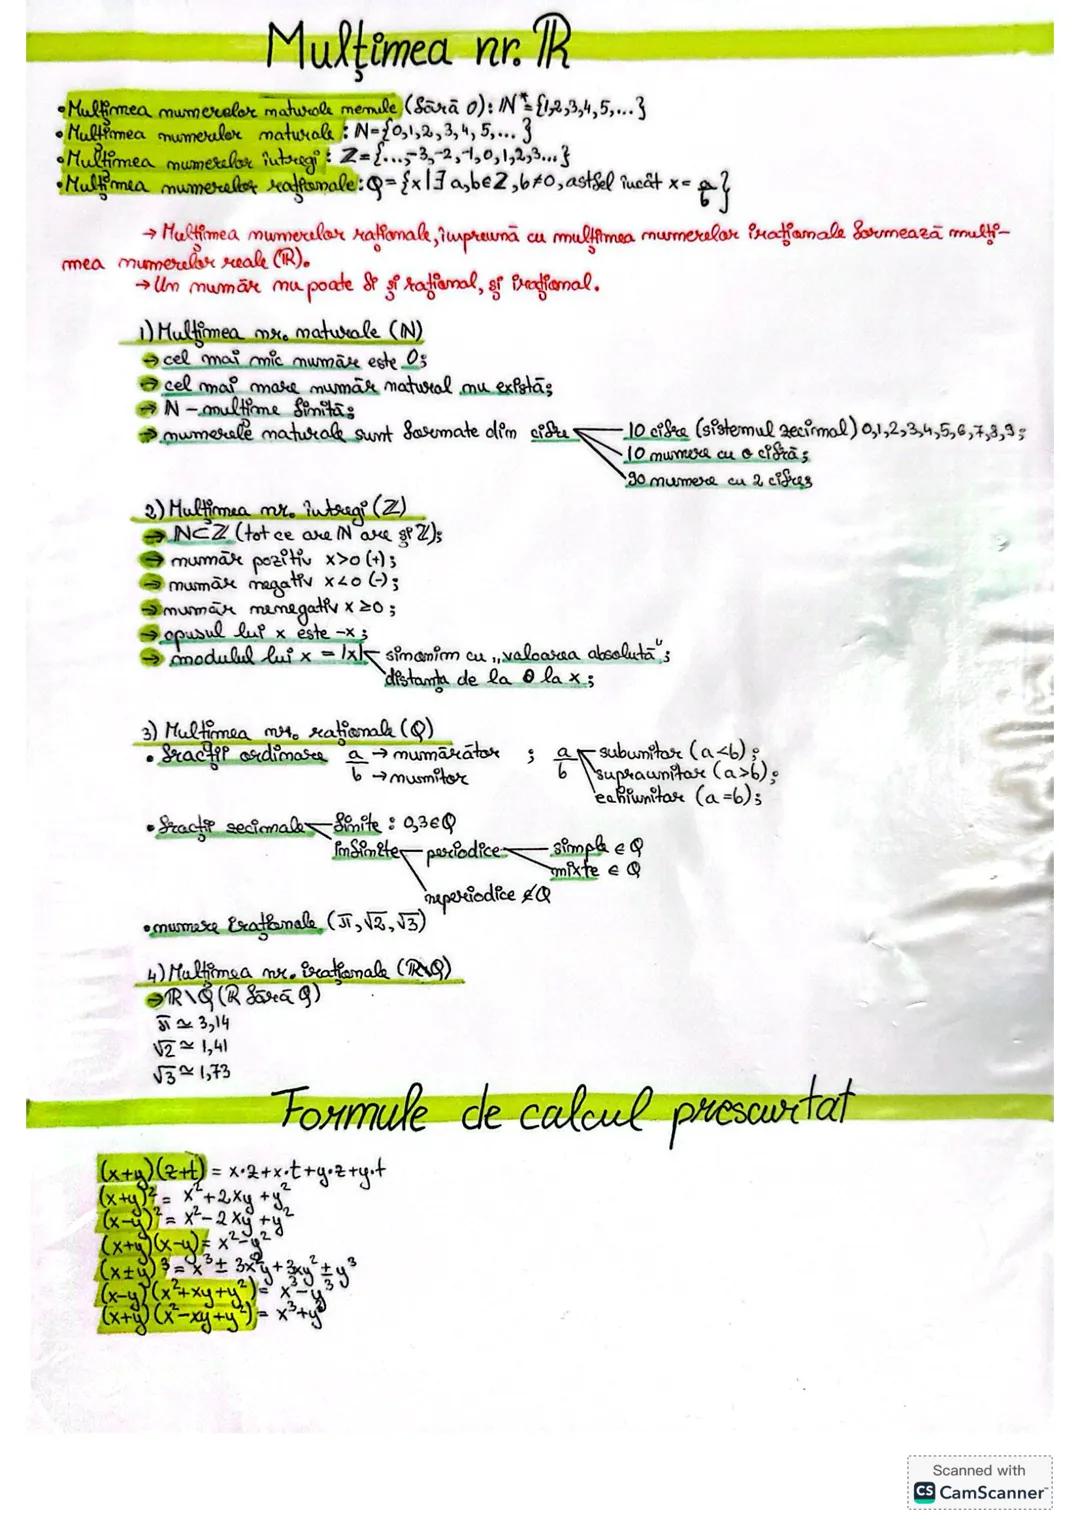 Mulțimea nr. ℝ
•Mulțimea numerelor naturale nenule (fără 0): ℕ*={1,2,3,4,5,...}
•Mulțimea numerelor naturale: ℕ={0,1,2,3,4,5,...}
•Mulțimea numerelor întregi: ℤ={...,-3,-2,-1,0,1,2,3...}
•Mulțimea numerelor raționale: ℚ={x|∃ a,b∈ℤ, b≠0, astfel încât x= a/b}
→ Mulțimea numerelor raționale, împreună cu mulțimea numerelor iraționale formează mulți-
mea numerelor reale (ℝ).
→ Un număr nu poate fi și rațional, și irațional.
1) Mulțimea nr. naturale (ℕ)
→ cel mai mic număr este 0;
→ cel mai mare număr natural nu există;
→ ℕ - mulțime finită;
→ numerele naturale sunt formate din cifre 10 cifre (sistemul zecimal) 0,1,2,3,4,5,6,7,8,9;
10 numere cu o cifră;
90 numere cu 2 cifre;
2) Mulțimea nr. întregi (ℤ)
→ ℕ⊂ℤ (tot ce are ℕ are și ℤ);
→ număr pozitiv x>0 (+);
→ număr negativ x<0 (-);
→ număr nenegativ x ≥0;
→ opusul lui x este -x;
→ modulul lui x = |x| sinonim cu „valoarea absolută";
distanța de la 0 la x;
3) Mulțimea nr. raționale (ℚ)
• fracții ordinare a/b → numărător → numitor ; a/b subunitar (a<b);
supraunitar (a>b);
echiunitar (a=b);
• fracții zecimale finite: 0,3∈ℚ
infinite periodice simple ∈ ℚ
mixte ∈ ℚ
neperiodice ∉ℚ
•numere iraționale (π,√2,√3)
4) Mulțimea nr. iraționale (ℝ\ℚ)
→ℝ\ℚ (ℝ fără ℚ)
π ≃ 3,14
√2 ≃ 1,41
√3 ≃ 1,73
Formule de calcul prescurtat
(x+y)(z+t) = x·z+x·t+y·z+y·t
(x+y)² = x²+2xy+y²
(x-y)² = x²-2xy+y²
(x+y)(x-y)= x²-y²
(x±y)³ = x³± 3x²y+3xy²±y³
(x-y)(x²+xy+y²)= x³-y³
(x+y)(x²-xy+y²)= x³+y³
Scanned with
CS CamScanner